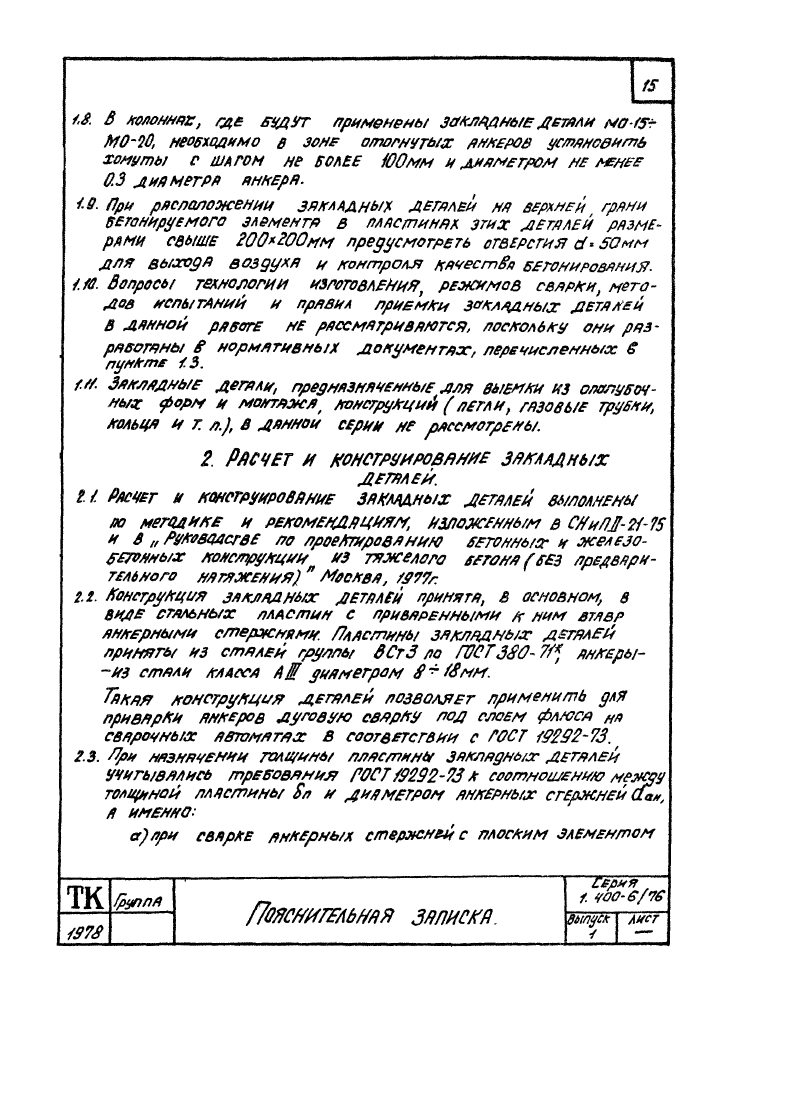 15
1.8. В колоннах, где будут применены закладные детали МО-15÷
МО-20, необходимо в зоне отогнутых анкеров установить
хомуты с шагом не более 100мм и диаметром не менее
0.3 диаметра анкера.
1.9. При расположении закладных деталей на верхней грани
бетонируемого элемента в пластинах этих деталей разме-
рами свыше 200×200мм предусмотреть отверстия d=50мм
для выхода воздуха и контроля качества бетонирования.
1.10. Вопросы технологии изготовления, режимов сварки, мето-
дов испытаний и правил приемки закладных деталей
в данной работе не рассматриваются, поскольку они раз-
работаны в нормативных документах, перечисленных в
пункте 1.3.
1.11. Закладные детали, предназначенные для выемки из опалубоч-
ных форм и монтажа конструкций (петли, газовые трубки,
кольца и т. п.), в данной серии не рассмотрены.
2. Расчет и конструирование закладных
деталей.
2.1. Расчет и конструирование закладных деталей выполнены
по методике и рекомендациям, изложенным в СНиП II-21-75
и в „Руководстве по проектированию бетонных и железо-
бетонных конструкции из тяжелого бетона (без предвари-
тельного натяжения)" Москва, 1977г.
2.2. Конструкция закладных деталей принята, в основном, в
виде стальных пластин с приваренными к ним втавр
анкерными стержнями. Пластины закладных деталей
приняты из сталей группы ВСт3 по ГОСТ 380-71*, анкеры-
-из стали класса АIII диаметром 8÷18мм.
Такая конструкция деталей позволяет применить для
приварки анкеров дуговую сварку под слоем флюса на
сварочных автоматах в соответствии с ГОСТ 19292-73.
2.3. При назначении толщины пластины закладных деталей
учитывались требования ГОСТ 19292-73 к соотношению между
толщиной пластины δп и диаметром анкерных стержней dан,
а именно:
а) при сварке анкерных стержней с плоским элементом
ТК Группа
Пояснительная записка.
Серия
1.400-6/76
1978
Выпуск
1
Лист
—